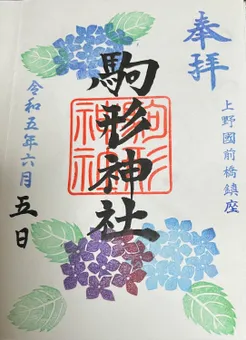 奉拝
上野國前橋鎮座
駒形神社
駒形神社
令和五年六月五日